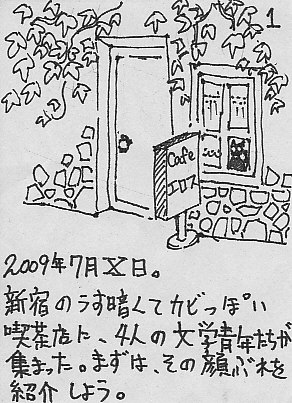 1
Cafe
エロス
2009年7月X日。
新宿のうす暗くてカビっぽい
喫茶店に、4人の文学青年たちが
集まった。まずは、その顔ぶれを
紹介しよう。